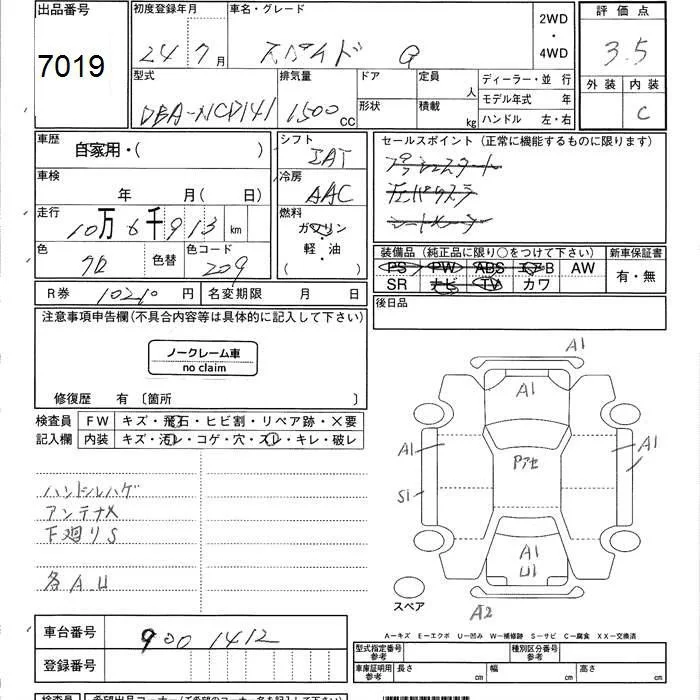 出品番号
7019
初度登録年月
24年7月
車名・グレード
スペイド G
2WD
・
4WD
評価点
3.5
外装 内装
C
型式
DBA-NCP141
排気量
1500 CC
ドア
形状
定員 人
積載 kg
ディーラー・並行
モデル年式 年
ハンドル 左・右
車歴
自家用・( )
シフト
IAT
セールスポイント(正常に機能するものに限ります)
プッシュスタート
左Pスラ
シートメーター
車検
年 月( 日)
冷房
AAC
走行
10万6千913km
燃料
ガソリン
・
軽・油
( )
色
クロ
色替
色コード
209
装備品(純正品に限り○をつけて下さい)
新車保証書
PS PW ABS エアB AW
SR ナビ TV カワ
有・無
R券 10210円
名変期限 月 日
後日品
注意事項申告欄(不具合内容等は具体的に記入して下さい)
ノークレーム車
no claim
修復歴 有〔箇所 〕
検査員
記入欄
FW キズ・飛石・ヒビ割・リペア跡・X要
内装 キズ・汚レ・コゲ・穴・スレ・キレ・破レ
ハンドルハゲ
アンテナX
下廻りS
各A.U
A1
A1
A1
A1
Pアセ
S1
A1
U1
A2
スペア
車台番号
9001412
登録番号
A−キズ E−エクボ U−凹み W−補修跡 S−サビ C−腐食 XX−交換済
型式指定番号
参考
種別区分番号
参考
車庫証明用
参考
長さ cm 幅 cm 高さ cm